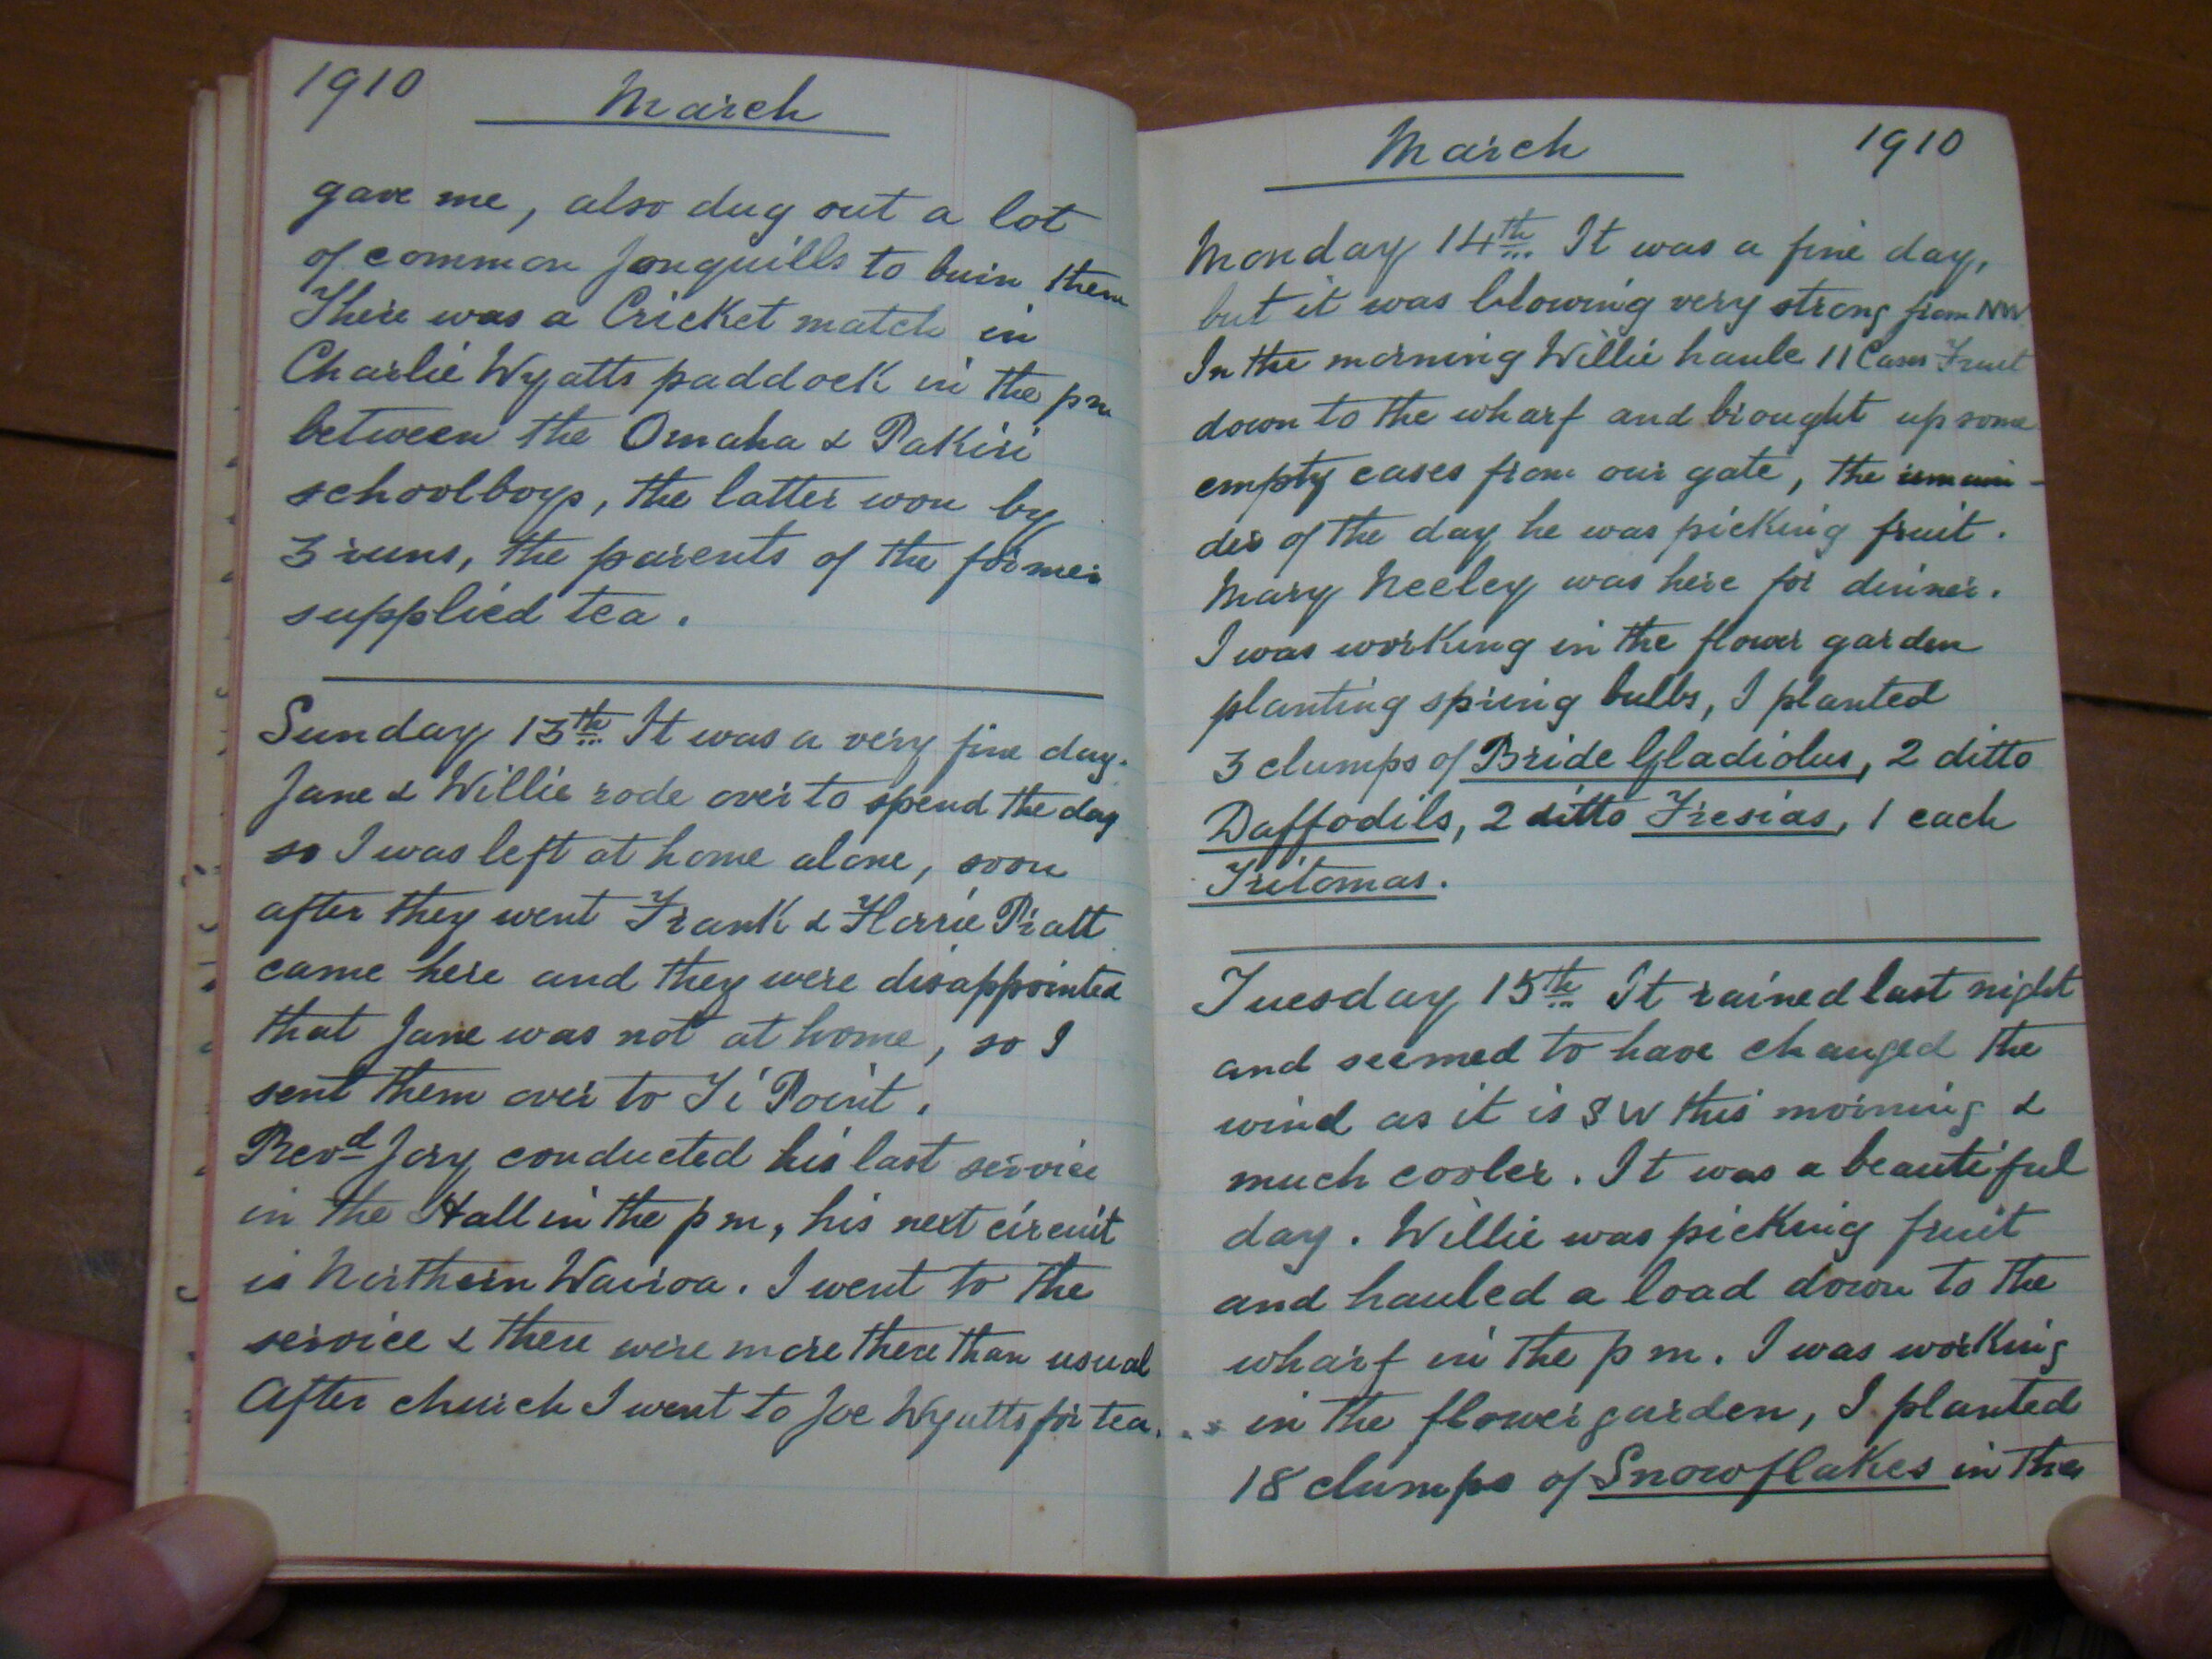 1910
March
gave me, also dug out a lot
of common Jonquills to burn them
There was a Cricket match in
Charlie Wyatts paddock in the pm
between the Omaha & Pakiri
schoolboys, the latter won by
3 runs, the parents of the former
supplied tea.
Sunday 13th It was a very fine day.
Jane & Willie rode over to spend the day
so I was left at home alone, soon
after they went Frank & Florrie Pratt
came here and they were disappointed
that Jane was not at home, so I
sent them over to Ti Point.
Revd Jory conducted his last service
in the Hall in the pm, his next circuit
is Northern Wairoa. I went to the
service & there were more there than usual
After church I went to Joe Wyatts for tea.
March
1910
Monday 14th It was a fine day,
but it was blowing very strong from NW
In the morning Willie haule 11 Cases Fruit
down to the wharf and brought up some
empty cases from our gate, the remain-
der of the day he was picking fruit.
Mary Neeley was here for dinner.
I was working in the flower garden
planting spring bulbs, I planted
3 clumps of Bride Gladiolus, 2 ditto
Daffodils, 2 ditto Fresias, 1 each
Tritomas.
Tuesday 15th It rained last night
and seemed to have changed the
wind as it is SW this morning &
much cooler. It was a beautiful
day. Willie was picking fruit
and hauled a load down to the
wharf in the pm. I was working
in the flower garden, I planted
18 clumps of Snowflakes in the